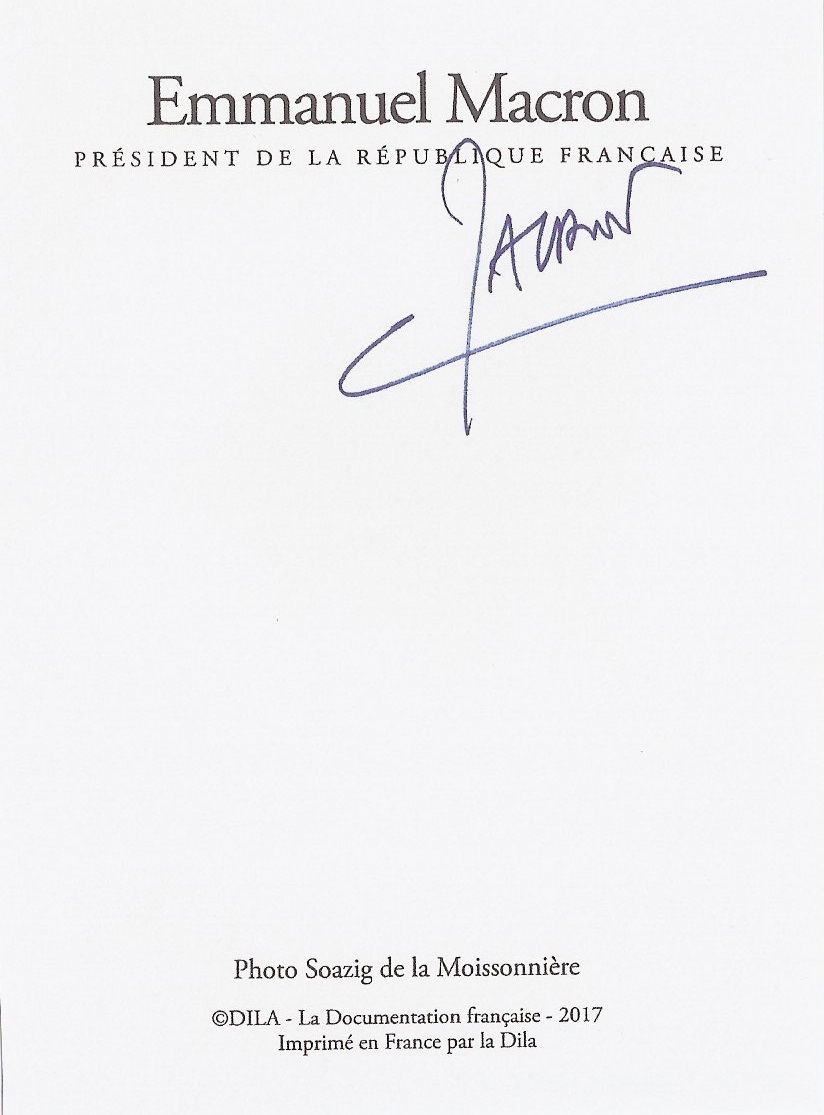 Emmanuel Macron
PRÉSIDENT DE LA RÉPUBLIQUE FRANÇAISE
Photo Soazig de la Moissonnière
©DILA - La Documentation française - 2017
Imprimé en France par la Dila